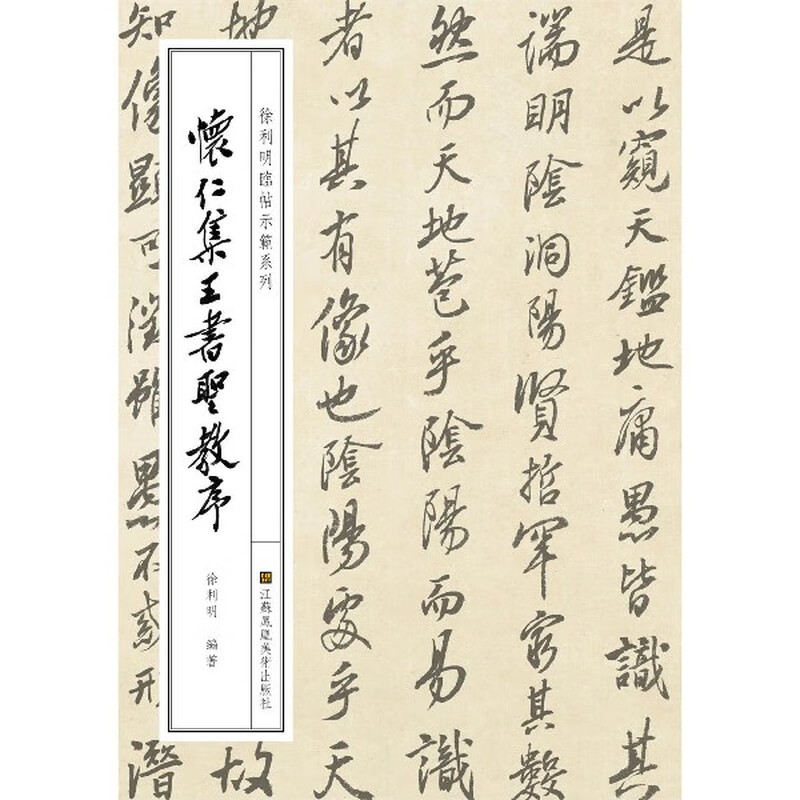 是以窺天鑑地庸愚皆識其
端明陰洞陽賢哲罕窮其數
然而天地苞乎陰陽而易識
者以其有像也陰陽處乎天
地
故
知像顯可徵雖愚不惑形潛
徐利明臨帖示範系列
懷仁集王書聖教序
徐利明 編著
江蘇鳳凰美術出版社